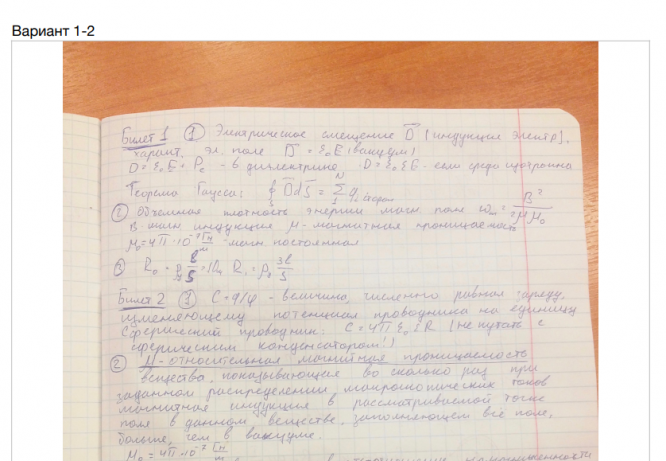 Вариант 1-2
Билет 1 ① Электрическое смещение D (индукция электр).
характ. эл. поле D = ε₀E (вакуум)
D = ε₀E + P - в диэлектрике D = ε₀εE - если среда изотропна
Теорема Гаусса: ∮ D dS = Σ q
② Объемная плотность энергии магн. поля ωm = B²/2μμ₀
B-магн индукция μ-магнитная проницаемость
μ₀=4π·10⁻⁷ Гн/м -магн постоянная
③ R₀ = ρ ℓ/S R₁ = ρ₀ 3ℓ/S
Билет 2 ① C = q/φ - величина, численно равная заряду,
изменяющему потенциал проводника на единицу
Сферический проводник: C = 4πε₀εR (не путать с
сферическим конденсатором!)
② μ-относительная магнитная проницаемость
вещества, показывающая во сколько раз при
заданном распределении макроскопических токов
магнитная индукция в рассматриваемой точке
поля в данном веществе, заполняющем все поле,
больше, чем в вакууме.
μ₀ = 4π·10⁻⁷ Гн/м